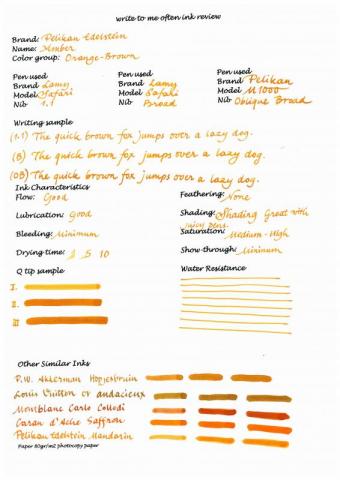 write to me often ink review
Brand: Pelikan Edelstein
Name: Amber
Color group: Orange-Brown
Pen used Pen used Pen used
Brand Lamy Brand Lamy Brand Pelikan
Model Safari Model Safari Model M1000
Nib 1.1 Nib Broad Nib Oblique Broad
Writing sample
(1.1) The quick brown fox jumps over a lazy dog.
(B) The quick brown fox jumps over a lazy dog.
(OB) The quick brown fox jumps over a lazy dog.
Ink Characteristics
Flow: Good Feathering: None
Lubrication: Good Shading: Shading Great with juicy pens.
Bleeding: Minimum Saturation: Medium-High
Drying time: 1 5 10 Show through: Minimum
Q tip sample Water Resistance
I.
II
III
Other Similar Inks
P.W. Akkerman Hopjesbruin
Louis Vuitton or audacieux
Montblanc Carlo Collodi
Caran d'Ache Saffron
Pelikan Edelstein Mandarin
Paper 80gr/m2 photocopy paper